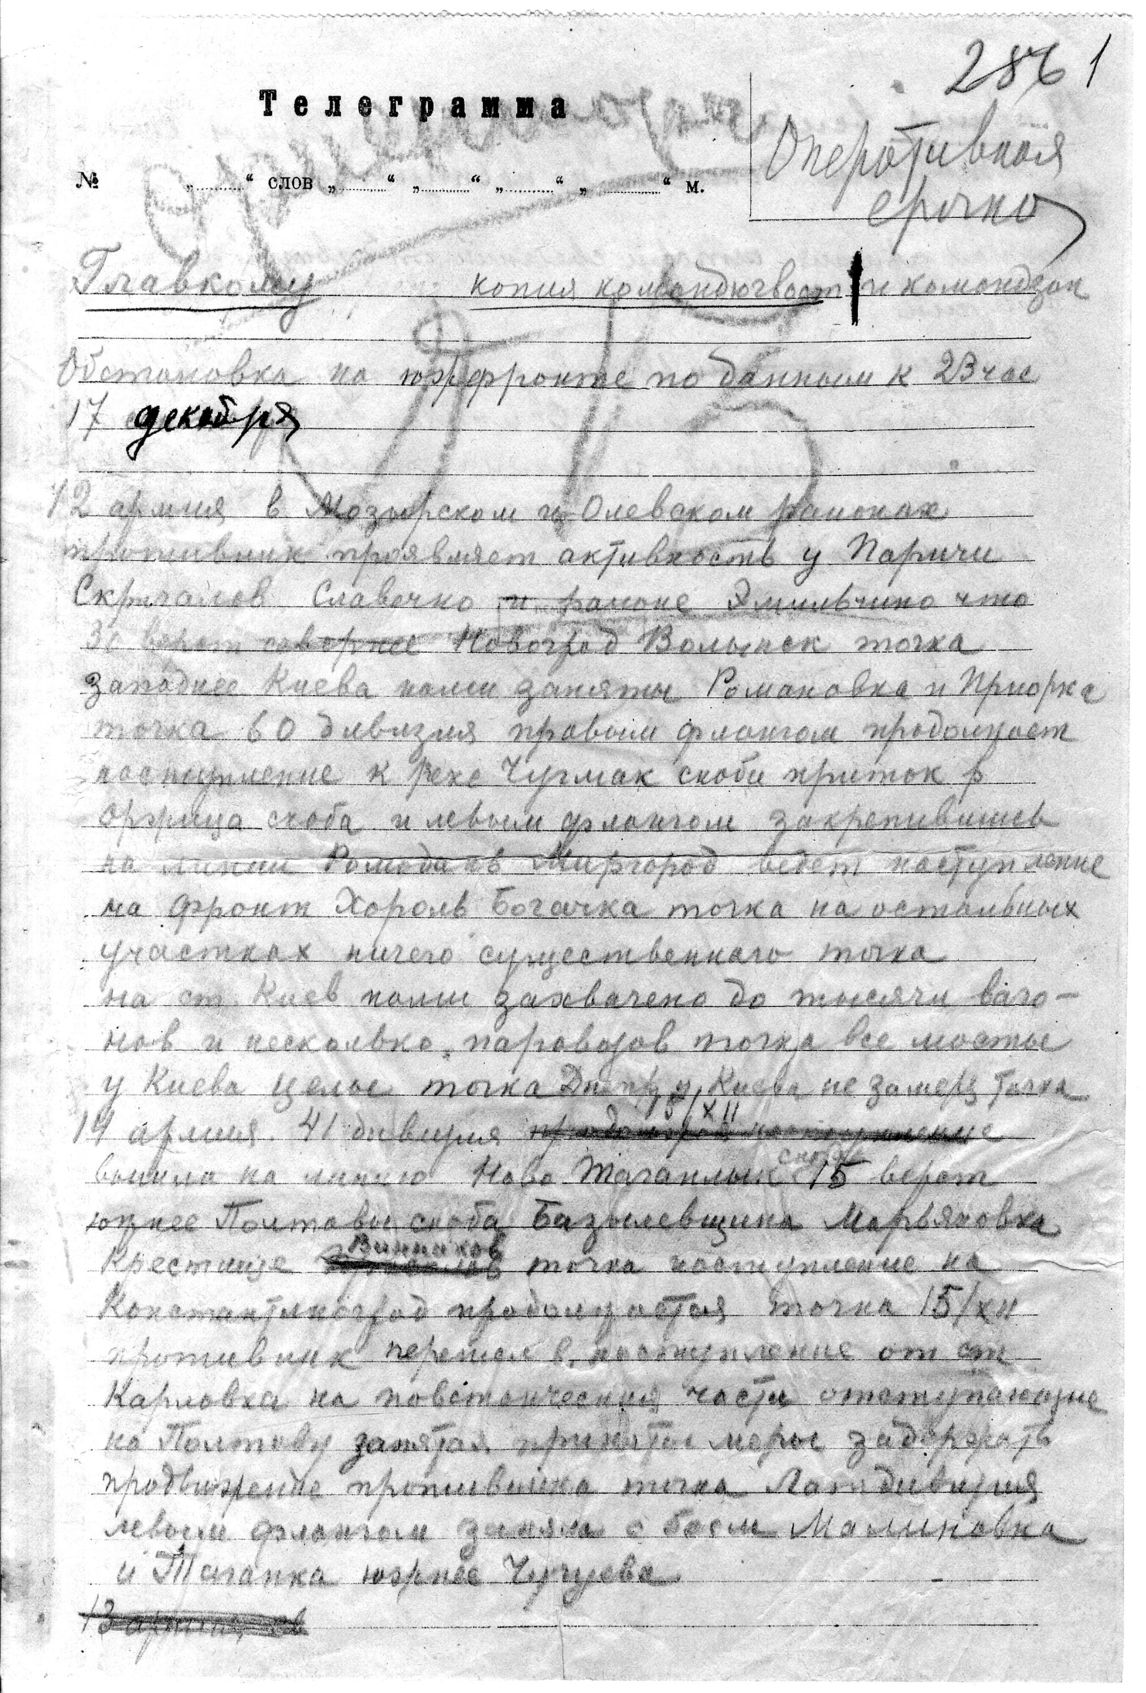 2861
Телеграмма
Оперативная
срочно
№ „ “ слов „ “ „ “ „ “ „ “ м.
Главкому копия командюгвост и командзап
Обстановка на южфронте по данным к 23 час
17 декабря
12 армия в Мозырском и Олевском районах
противник проявляет активность у Паричи
Скрыгалов Славечно и районе Эмильчино что
30 верст севернее Новоград Волынск точка
западнее Киева нами заняты Романовка и Приорка
точка 60 дивизия правым флангом продолжает
наступление к реке Чугмак скоба приток р
Оржица скоба и левым флангом закрепившись
на линии Ромодан Миргород ведет наступление
на фронт Хороль Богачка точка на остальных
участках ничего существенного точка
на ст. Киев нами захвачено до тысячи ваго-
нов и несколько паровозов точка все мосты
у Киева целые точка Днепр у Киева не замерз точка
14 армия. 41 дивизия 15/XII
вышла на линию Ново Тагамлык скоба 15 верст
южнее Полтавы скоба Базилевщина Марьяновка
Крестище Винников точка наступление на
Константиноград продолжается точка 15/XII
противник перешел в наступление от ст
Карловка на повстанческия части отступающие
на Полтаву запятая приняты меры задержать
продвижение противника точка Латдивизия
левым флангом заняла с боем Малиновка
и Тагапка южнее Чугуева
13 армия. в